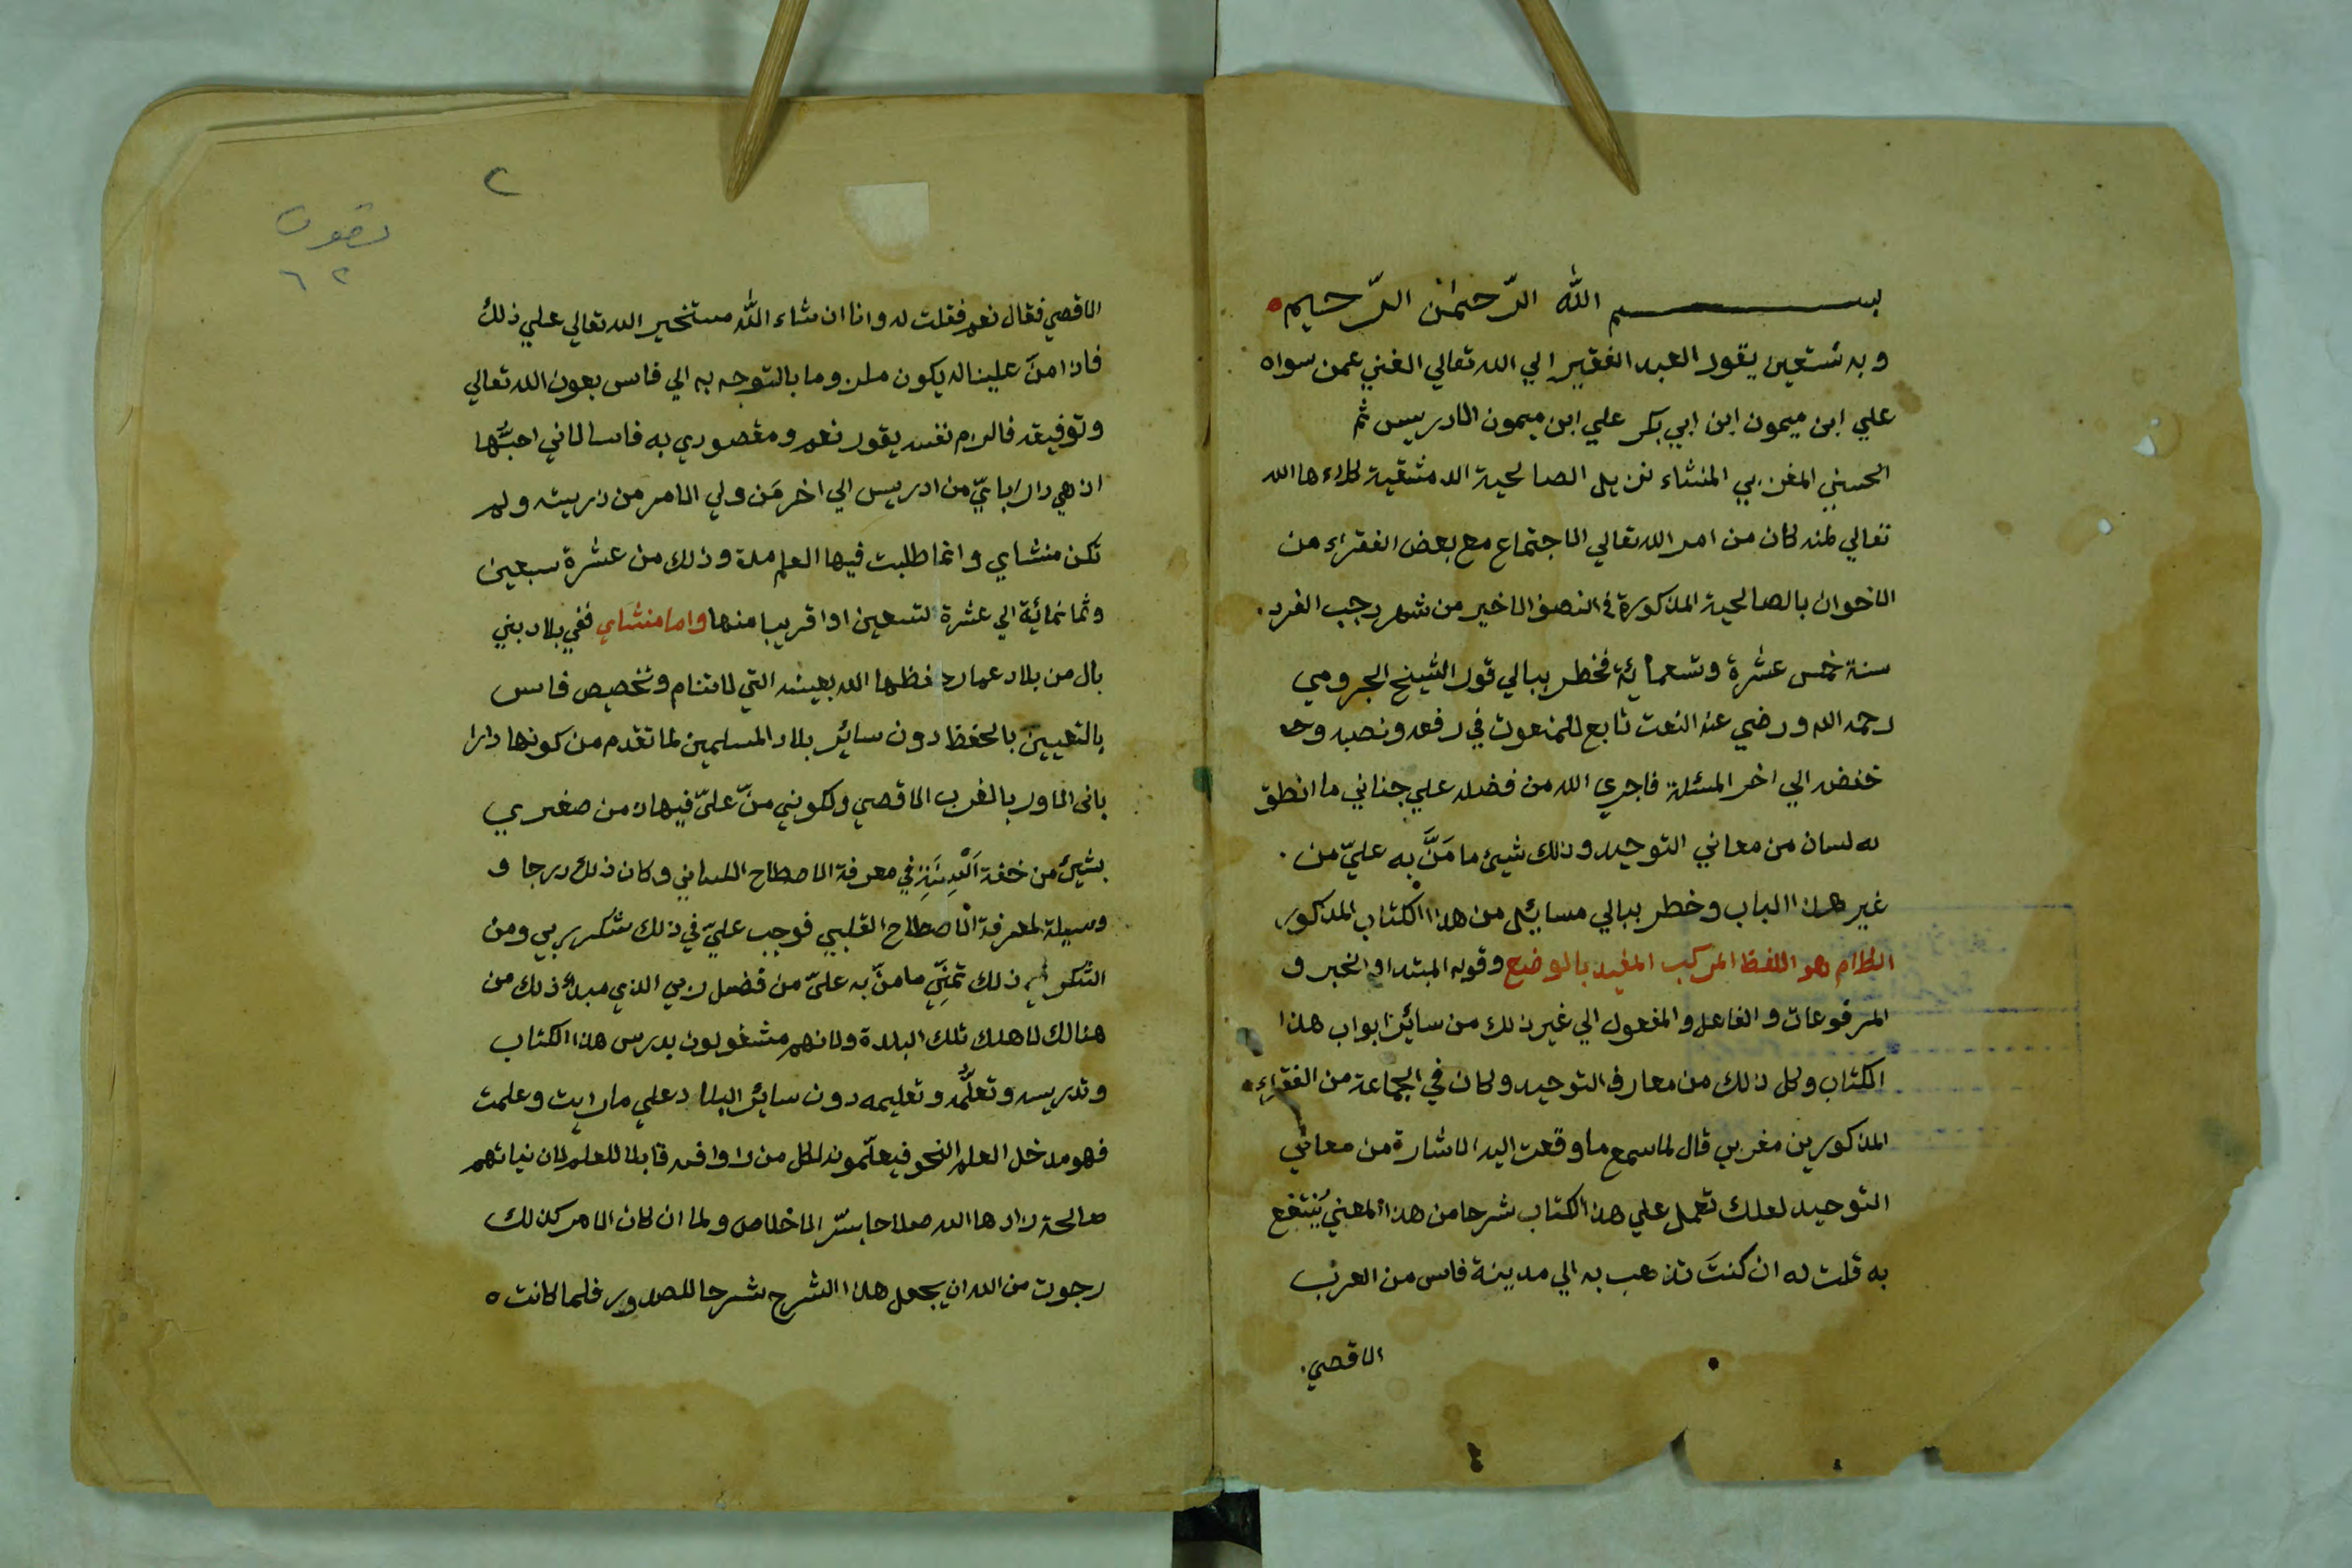 بسم الله الرّحمٰن الرّحيم
وبه نستعين يقول العبد الفقير الي الله تعالي الغني عمن سواه
علي ابن ميمون ابن ابي بكر علي ابن ميمون الادريسي ثم
الحسني المغربي المنشاء نزيل الصالحية الدمشقية كلاءها الله
تعالي لمنه كان من امر الله تعالي الاجتماع مع بعض الفقراء من
الاخوان بالصالحية المذكورة في النصف الاخير من شهر رجب الفرد
سنة خمس عشرة وتسعمائة فخطر ببالي قول الشيخ الجرومي
رحمه الله ورضي عنه النعت تابع للمنعوت في رفعه ونصبه و
خفضه الي اخر المسئلة فاجري الله من فضله علي جناني ما انطق
له لسان من معاني التوحيد وذلك شيئ ما مَنَّ به عليّ من
غير هذا الباب وخطر ببالي مسايئل من هذا الكتاب المذكور
الكلام هو اللفظ المركب المفيد بالوضع وقوله المبتدا والخبر و
المرفوعات والفاعل والمفعول الي غير ذلك من سائر ابواب هذا
الكتاب وكل ذلك من معارف التوحيد وكان في الجماعة من الفقراء
المذكورين مغربي قال لما سمع ما وقعت اليه الاشارة من معاني
التوحيد لعلك تعمل علي هذا الكتاب شرحا من هذا المعني يُنتفع
به قلت له ان كنتَ تذهب به الي مدينة فاس من الغرب
الاقصي
٢
تصوف
٦٢
الاقصي فقال نعم فقلت له وانا ان شاء الله مستخير الله تعالي علي ذلك
فاذا منَّ علينا له يكون ملزوما بالتوجه به الي فاس بعون الله تعالي
وتوفيقه فالزم نفسه يقول نعم ومقصوري به فاسا لاني احبُّها
اذ هي دار ابايّ من ادريس الي اخر مَن ولي الامر من ذريته ولم
تكن منشاي وانما طلبت فيها العلم مدة وذلك من عشرة سبعين
وثمانمائة الي عشرة لتسعين او اقريبا منها واما منشاي ففي بلاد بني
بال من بلاد عمارة حفظها الله بعينه التي لا تنام وتخصيص فاس
بالتعيين بالحفظ دون سائر بلاد المسلمين لما تقدم من كونها دارا
باني الماور بالغرب الاقصي ولكوني منّ عليّ فيها دمن صغري
بشيئ من خفة في معرفة الاصطلاح اللساني وكان ذلك درجا و
وسيلة لمعرفة الاصطلاح القلبي فوجب عليّ في ذلك شكر ربي ومن
الشكر في ذلك تمنّي ما منّ به عليّ من فضل ربي الذي مبداُ ذلك من
هنالك لاهلك تلك البلدة ولانهم مشغولون بدرس هذا الكتاب
وتدريسه وتعلُّمه وتعليمه دون سائر البلاد علي ما رايت وعلمت
فهو مدخل العلم النحو فيعلّمونه لكل من راوا فيه قابلا للعلم لان نياتهم
صالحة زادها الله صلاحا بسّر الاخلاص ولما ان كان الامر كذلك
رجوت من الله ان يجعل هذا الشرح شرحا للصدور فلما كانت